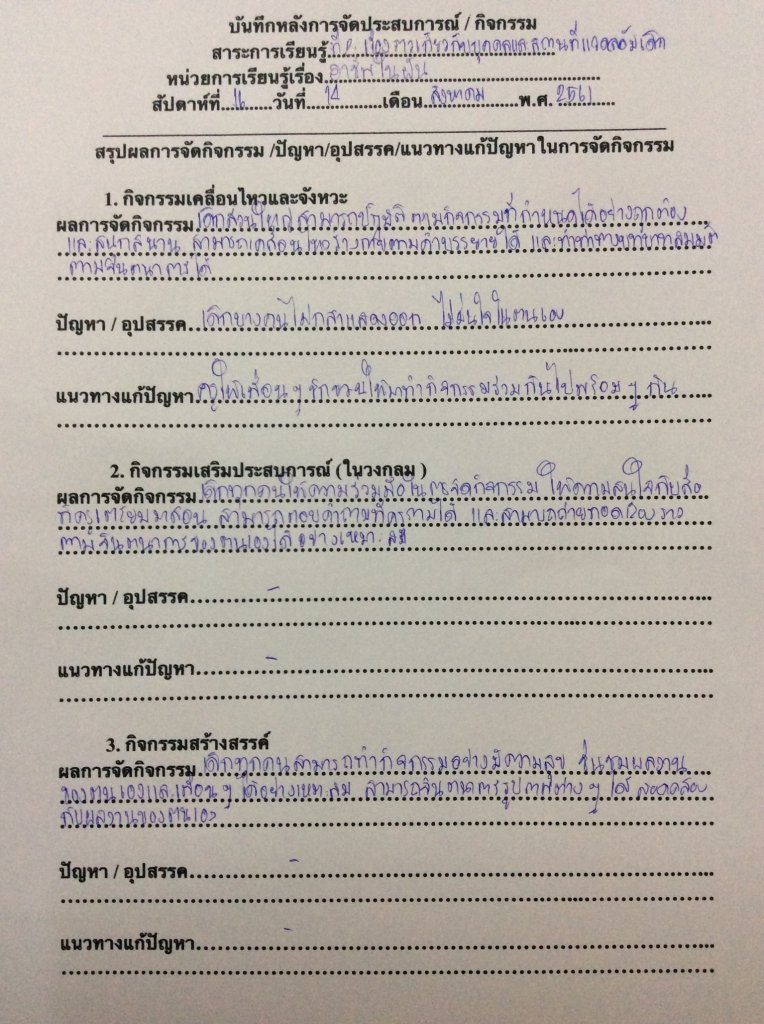 บันทึกหลังการจัดประสบการณ์ / กิจกรรม
สาระการเรียนรู้ ที่ 2 เรื่องราวเกี่ยวกับบุคคลและสถานที่แวดล้อมเด็ก
หน่วยการเรียนรู้เรื่อง อาชีพในฝัน
สัปดาห์ที่ 16 วันที่ 14 เดือน สิงหาคม พ.ศ. 2561
สรุปผลการจัดกิจกรรม /ปัญหา/อุปสรรค/แนวทางแก้ปัญหาในการจัดกิจกรรม
1. กิจกรรมเคลื่อนไหวและจังหวะ
ผลการจัดกิจกรรม เด็กส่วนใหญ่สามารถปฏิบัติตามกิจกรรมที่กำหนดได้อย่างถูกต้อง
และสนุกสนาน สามารถเคลื่อนไหวร่างกายตามคำบรรยายได้ และทำท่าทางบทบาทสมมติ
ตามจินตนาการได้
ปัญหา / อุปสรรค เด็กบางคนไม่กล้าแสดงออก ไม่มั่นใจในตนเอง
แนวทางแก้ปัญหา ครูให้เพื่อน ๆ ชักชวนให้มาทำกิจกรรมร่วมกันไปพร้อม ๆ กัน
2. กิจกรรมเสริมประสบการณ์ (ในวงกลม )
ผลการจัดกิจกรรม เด็กทุกคนให้ความร่วมมือในการจัดกิจกรรม ให้ความสนใจกับสื่อ
ที่ครูเตรียมมาสอน สามารถตอบคำถามที่ครูถามได้ และสามารถถ่ายทอดเรื่องราว
ตามจินตนาการของตนเองได้อย่างเหมาะสม
ปัญหา / อุปสรรค -
แนวทางแก้ปัญหา -
3. กิจกรรมสร้างสรรค์
ผลการจัดกิจกรรม เด็กทุกคนสามารถทำกิจกรรมอย่างมีความสุข ชื่นชมผลงาน
ของตนเองและเพื่อนๆ ได้อย่างเหมาะสม สามารถจินตนาการรูปภาพต่าง ๆ ได้ สอดคล้อง
กับผลงานของตนเอง
ปัญหา / อุปสรรค -
แนวทางแก้ปัญหา -